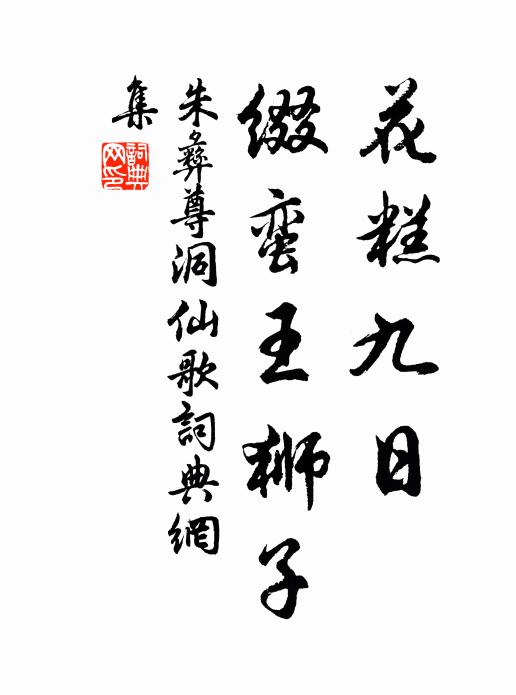 花糕九日
缀蛮王狮子
朱彝尊洞仙歌詞典網
集
詞典网印